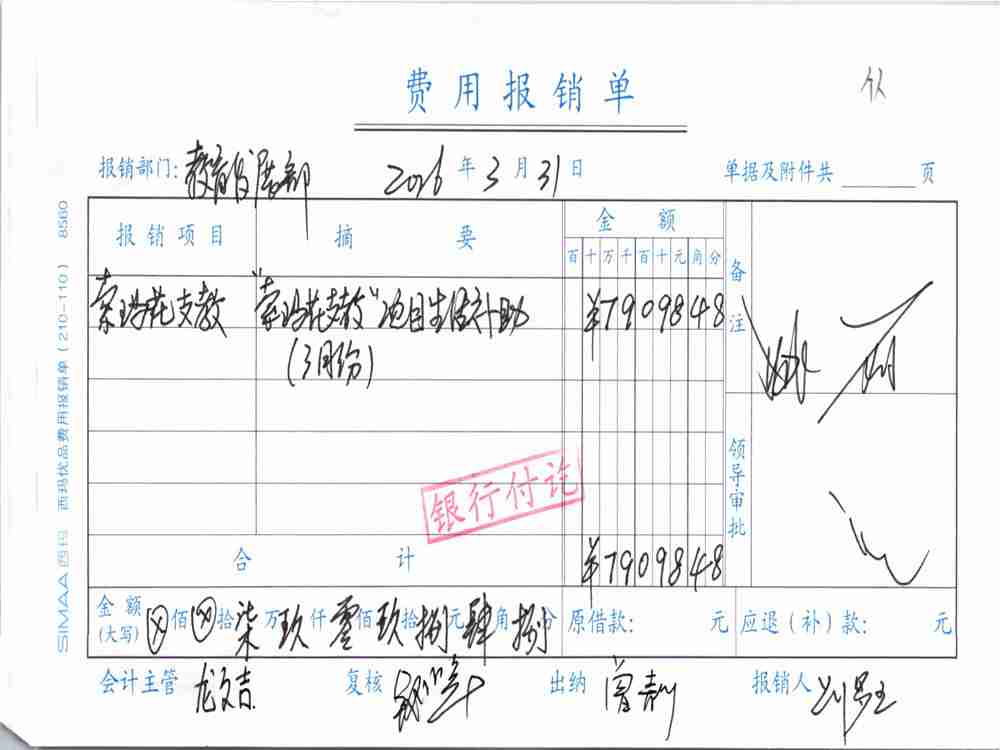 费用报销单
报销部门: 教育发展部 2016 年 3 月 31 日 单据及附件共 页
报销项目 摘要 金额 备注
百 十 万 千 百 十 元 角 分
索玛花支教 "索玛花支教"项目生活补助 ¥7909848
(3月份)
领导审批
银行付讫
合计 ¥7909848
金额(大写) ⊗佰⊗拾柒万玖仟零佰玖拾捌元肆角捌分 原借款: 元 应退(补)款: 元
会计主管 龙文吉 复核 出纳 曾莉 报销人
SIMAA 西玛 西玛优品费用报销单(210-110) 8560